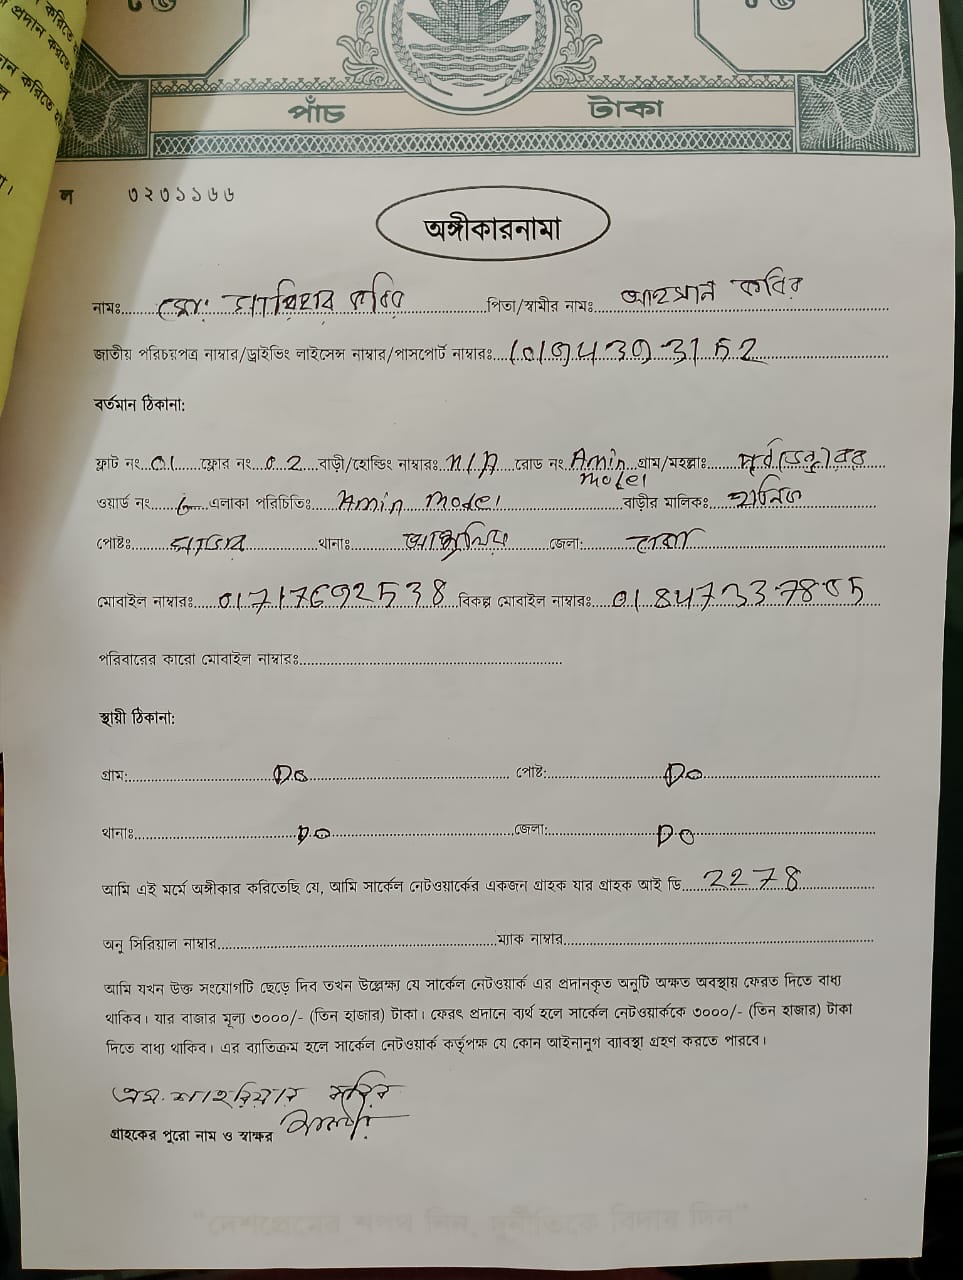 পাঁচ টাকা
ল ৩২৩১১৬৬
অঙ্গীকারনামা
নামঃ মোঃ কবির পিতা/স্বামীর নামঃ আহসান কবির
জাতীয় পরিচয়পত্র নাম্বার/ড্রাইভিং লাইসেন্স নাম্বার/পাসপোর্ট নাম্বারঃ
বর্তমান ঠিকানা:
ফ্লাট নং 01 ফ্লোর নং 02 বাড়ী/হোল্ডিং নাম্বারঃ N/A রোড নং Amin model গ্রাম/মহল্লাঃ
ওয়ার্ড নং 6 এলাকা পরিচিতিঃ Amin model বাড়ীর মালিকঃ হানিফ
পোষ্টঃ সাভার থানাঃ আশুলিয়া জেলা: ঢাকা
মোবাইল নাম্বারঃ 01717692538 বিকল্প মোবাইল নাম্বারঃ 01847337805
পরিবারের কারো মোবাইল নাম্বারঃ
স্থায়ী ঠিকানা:
গ্রাম: Do পোষ্ট: Do
থানাঃ Do জেলা: Do
আমি এই মর্মে অঙ্গীকার করিতেছি যে, আমি সার্কেল নেটওয়ার্কের একজন গ্রাহক যার গ্রাহক আই ডি 2278
অনু সিরিয়াল নাম্বার ম্যাক নাম্বার
আমি যখন উক্ত সংযোগটি ছেড়ে দিব তখন উল্লেক্ষ্য যে সার্কেল নেটওয়ার্ক এর প্রদানকৃত অনুটি অক্ষত অবস্থায় ফেরত দিতে বাধ্য
থাকিব। যার বাজার মূল্য ৩০০০/- (তিন হাজার) টাকা। ফেরৎ প্রদানে ব্যর্থ হলে সার্কেল নেটওয়ার্ককে ৩০০০/- (তিন হাজার) টাকা
দিতে বাধ্য থাকিব। এর ব্যাতিক্রম হলে সার্কেল নেটওয়ার্ক কর্তৃপক্ষ যে কোন আইনানুগ ব্যাবস্থা গ্রহণ করতে পারবে।
এম. শাহরিয়ার কবির
গ্রাহকের পুরো নাম ও স্বাক্ষর
"দেশপ্রেমের শপথ নিন, দুর্নীতিকে বিদায় দিন"